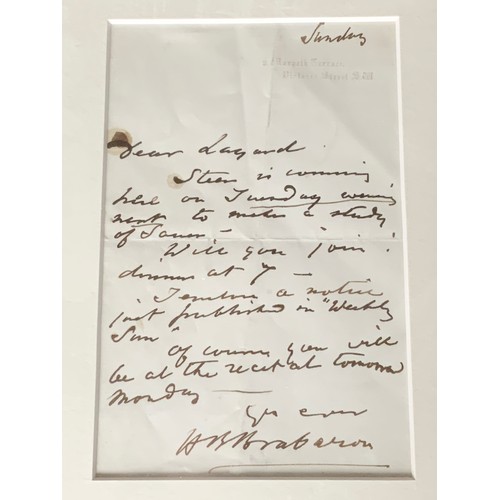 Sunday
Morpeth Terrace
Victoria Street S.W.
Dear Layard.
Steer is coming
here on Tuesday evening
next to make a study
of Sauer. –
Will you join?
dinner at 7 –
I enclose a notice
just published in "Weekly
Sun"
Of course you will
be at the recital tomorrow
Monday –
Yrs ever
H B Brabazon